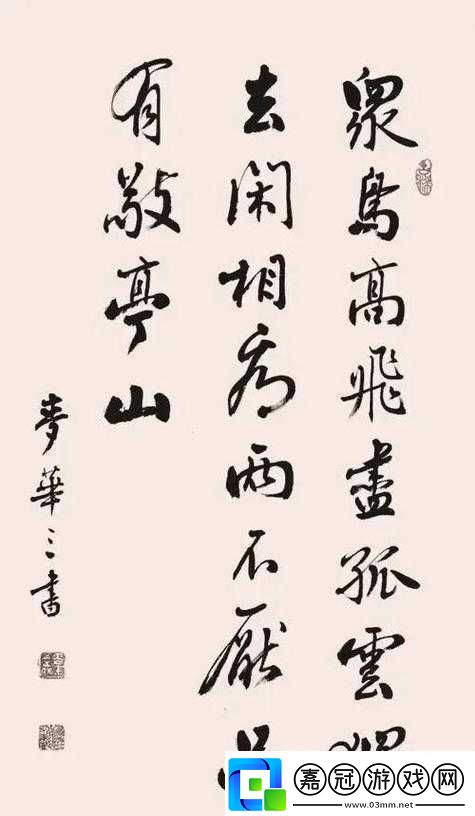 眾鳥高飛盡孤雲
去閑相看兩不厭
有敬亭山
麥華三書
嘉冠游戏网
www.03mm.net